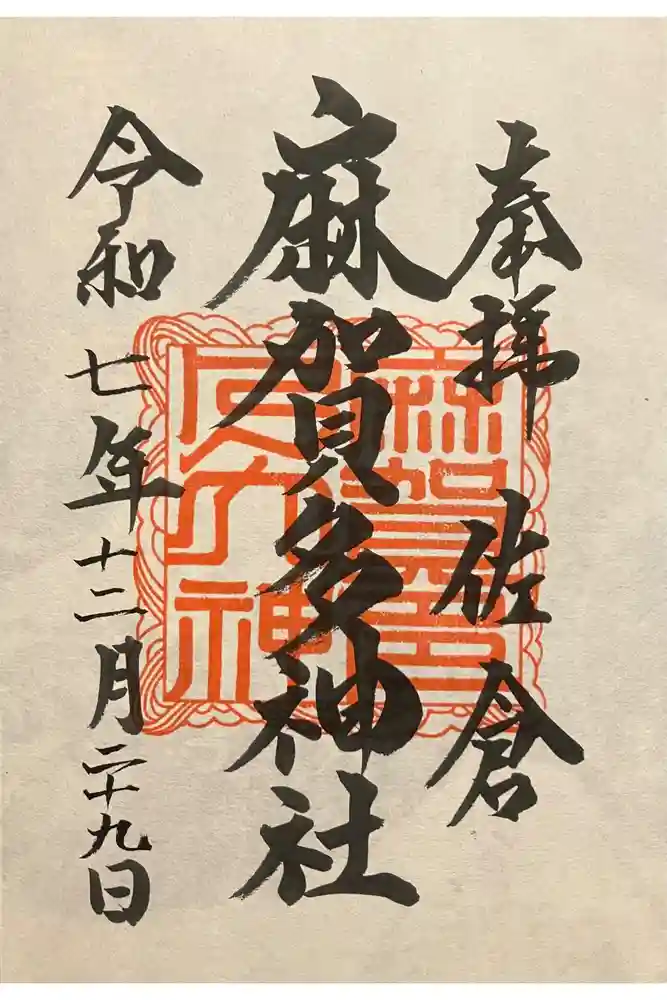 奉拝 佐倉
麻賀多神社
令和七年十二月二十九日
麻賀多
大神